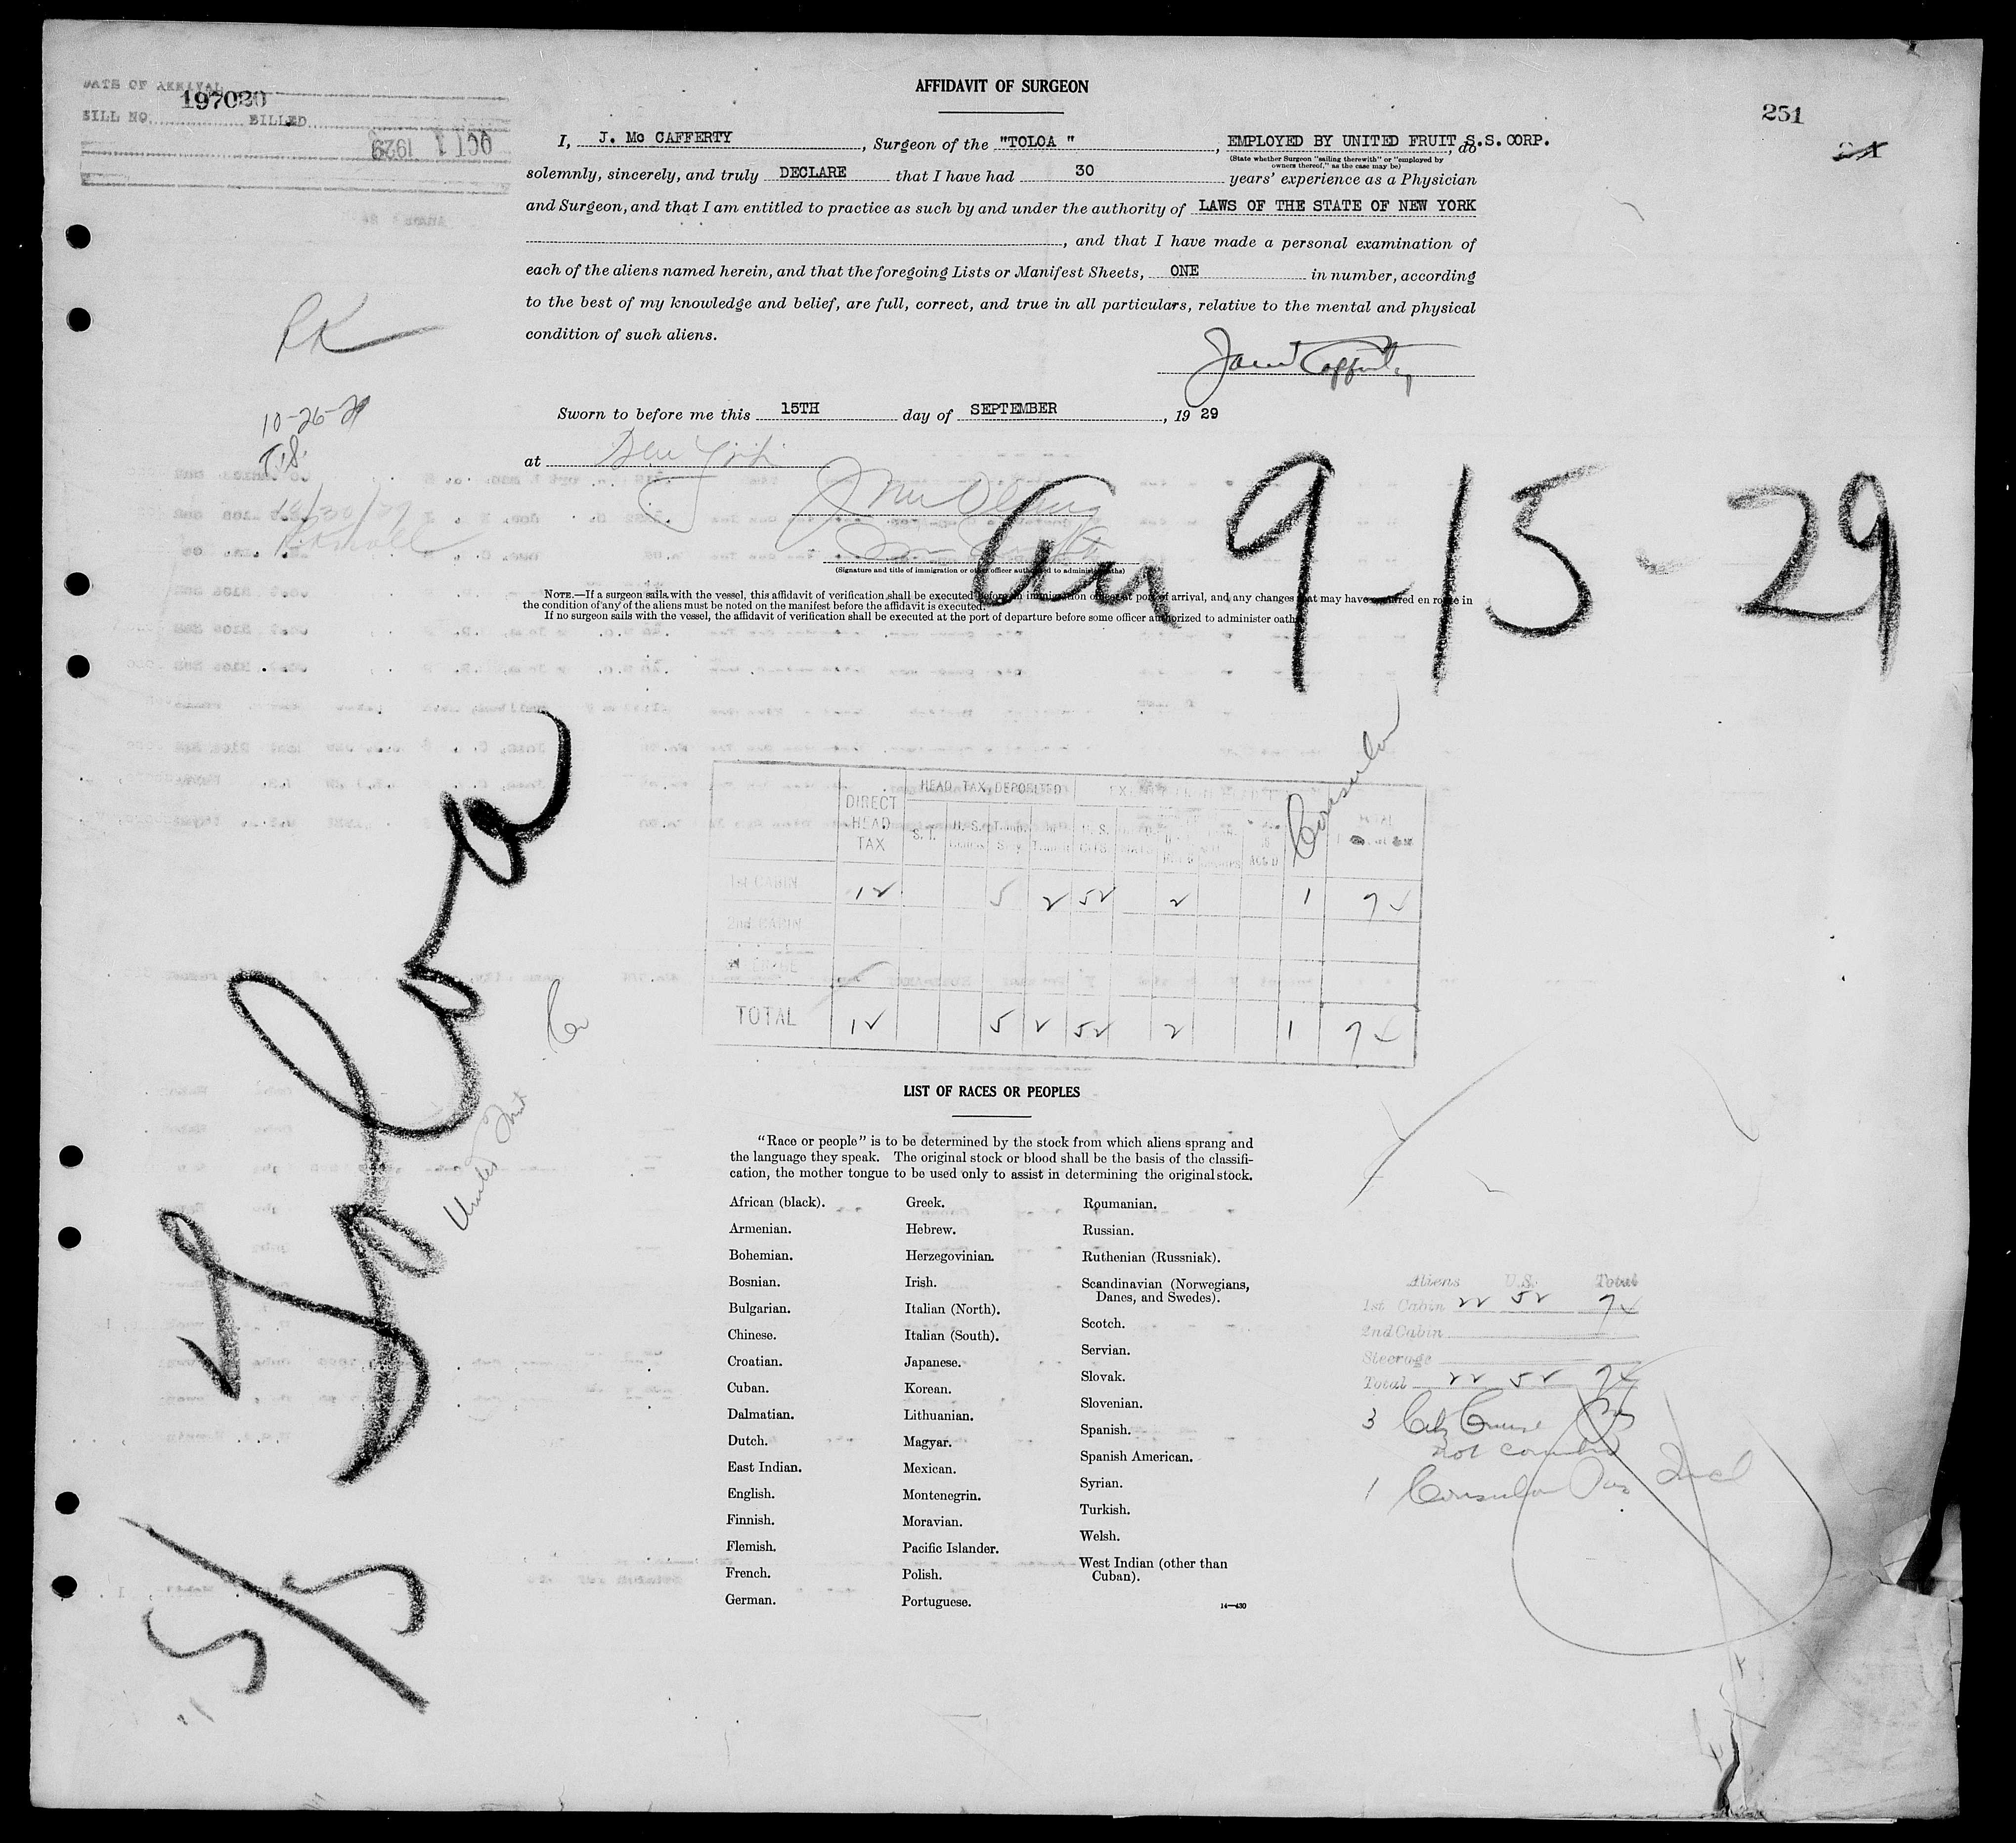 DATE OF ARRIVAL
197020
BILL NO. BILLED
OCT 1 1929
AFFIDAVIT OF SURGEON
251
I, J. Mc CAFFERTY, Surgeon of the "TOLOA ", EMPLOYED BY UNITED FRUIT S.S. CORP., do
(State whether Surgeon "sailing therewith" or "employed by
owners thereof," as the case may be)
solemnly, sincerely, and truly DECLARE that I have had 30 years' experience as a Physician
and Surgeon, and that I am entitled to practice as such by and under the authority of LAWS OF THE STATE OF NEW YORK
, and that I have made a personal examination of
each of the aliens named herein, and that the foregoing Lists or Manifest Sheets, ONE in number, according
to the best of my knowledge and belief, are full, correct, and true in all particulars, relative to the mental and physical
condition of such aliens.
Sworn to before me this 15TH day of SEPTEMBER, 19 29
at New York
(Signature and title of immigration or other officer authorized to administer oaths)
NOTE.—If a surgeon sails with the vessel, this affidavit of verification shall be executed before an immigration officer at port of arrival, and any changes that may have occurred en route in
the condition of any of the aliens must be noted on the manifest before the affidavit is executed.
If no surgeon sails with the vessel, the affidavit of verification shall be executed at the port of departure before some officer authorized to administer oaths.
10-26-29
Arr 9-15-29
Toloa
United Fruit Co
5/5
Consular
DIRECT HEAD TAX
HEAD TAX DEPOSITED
S.T.
TOTAL
1st CABIN 12 5 2 52 2 1 74
2nd CABIN
STEERAGE
TOTAL 12 5 2 52 2 1 74
LIST OF RACES OR PEOPLES
"Race or people" is to be determined by the stock from which aliens sprang and
the language they speak. The original stock or blood shall be the basis of the classifi-
cation, the mother tongue to be used only to assist in determining the original stock.
African (black).
Armenian.
Bohemian.
Bosnian.
Bulgarian.
Chinese.
Croatian.
Cuban.
Dalmatian.
Dutch.
East Indian.
English.
Finnish.
Flemish.
French.
German.
Greek.
Hebrew.
Herzegovinian.
Irish.
Italian (North).
Italian (South).
Japanese.
Korean.
Lithuanian.
Magyar.
Mexican.
Montenegrin.
Moravian.
Pacific Islander.
Polish.
Portuguese.
Roumanian.
Russian.
Ruthenian (Russniak).
Scandinavian (Norwegians,
Danes, and Swedes).
Scotch.
Servian.
Slovak.
Slovenian.
Spanish.
Spanish American.
Syrian.
Turkish.
Welsh.
West Indian (other than
Cuban).
14—430
Aliens U.S. Total
1st Cabin 22 52 74
2nd Cabin
Steerage
Total 22 52 74
3
not counted
1 Consular Incl